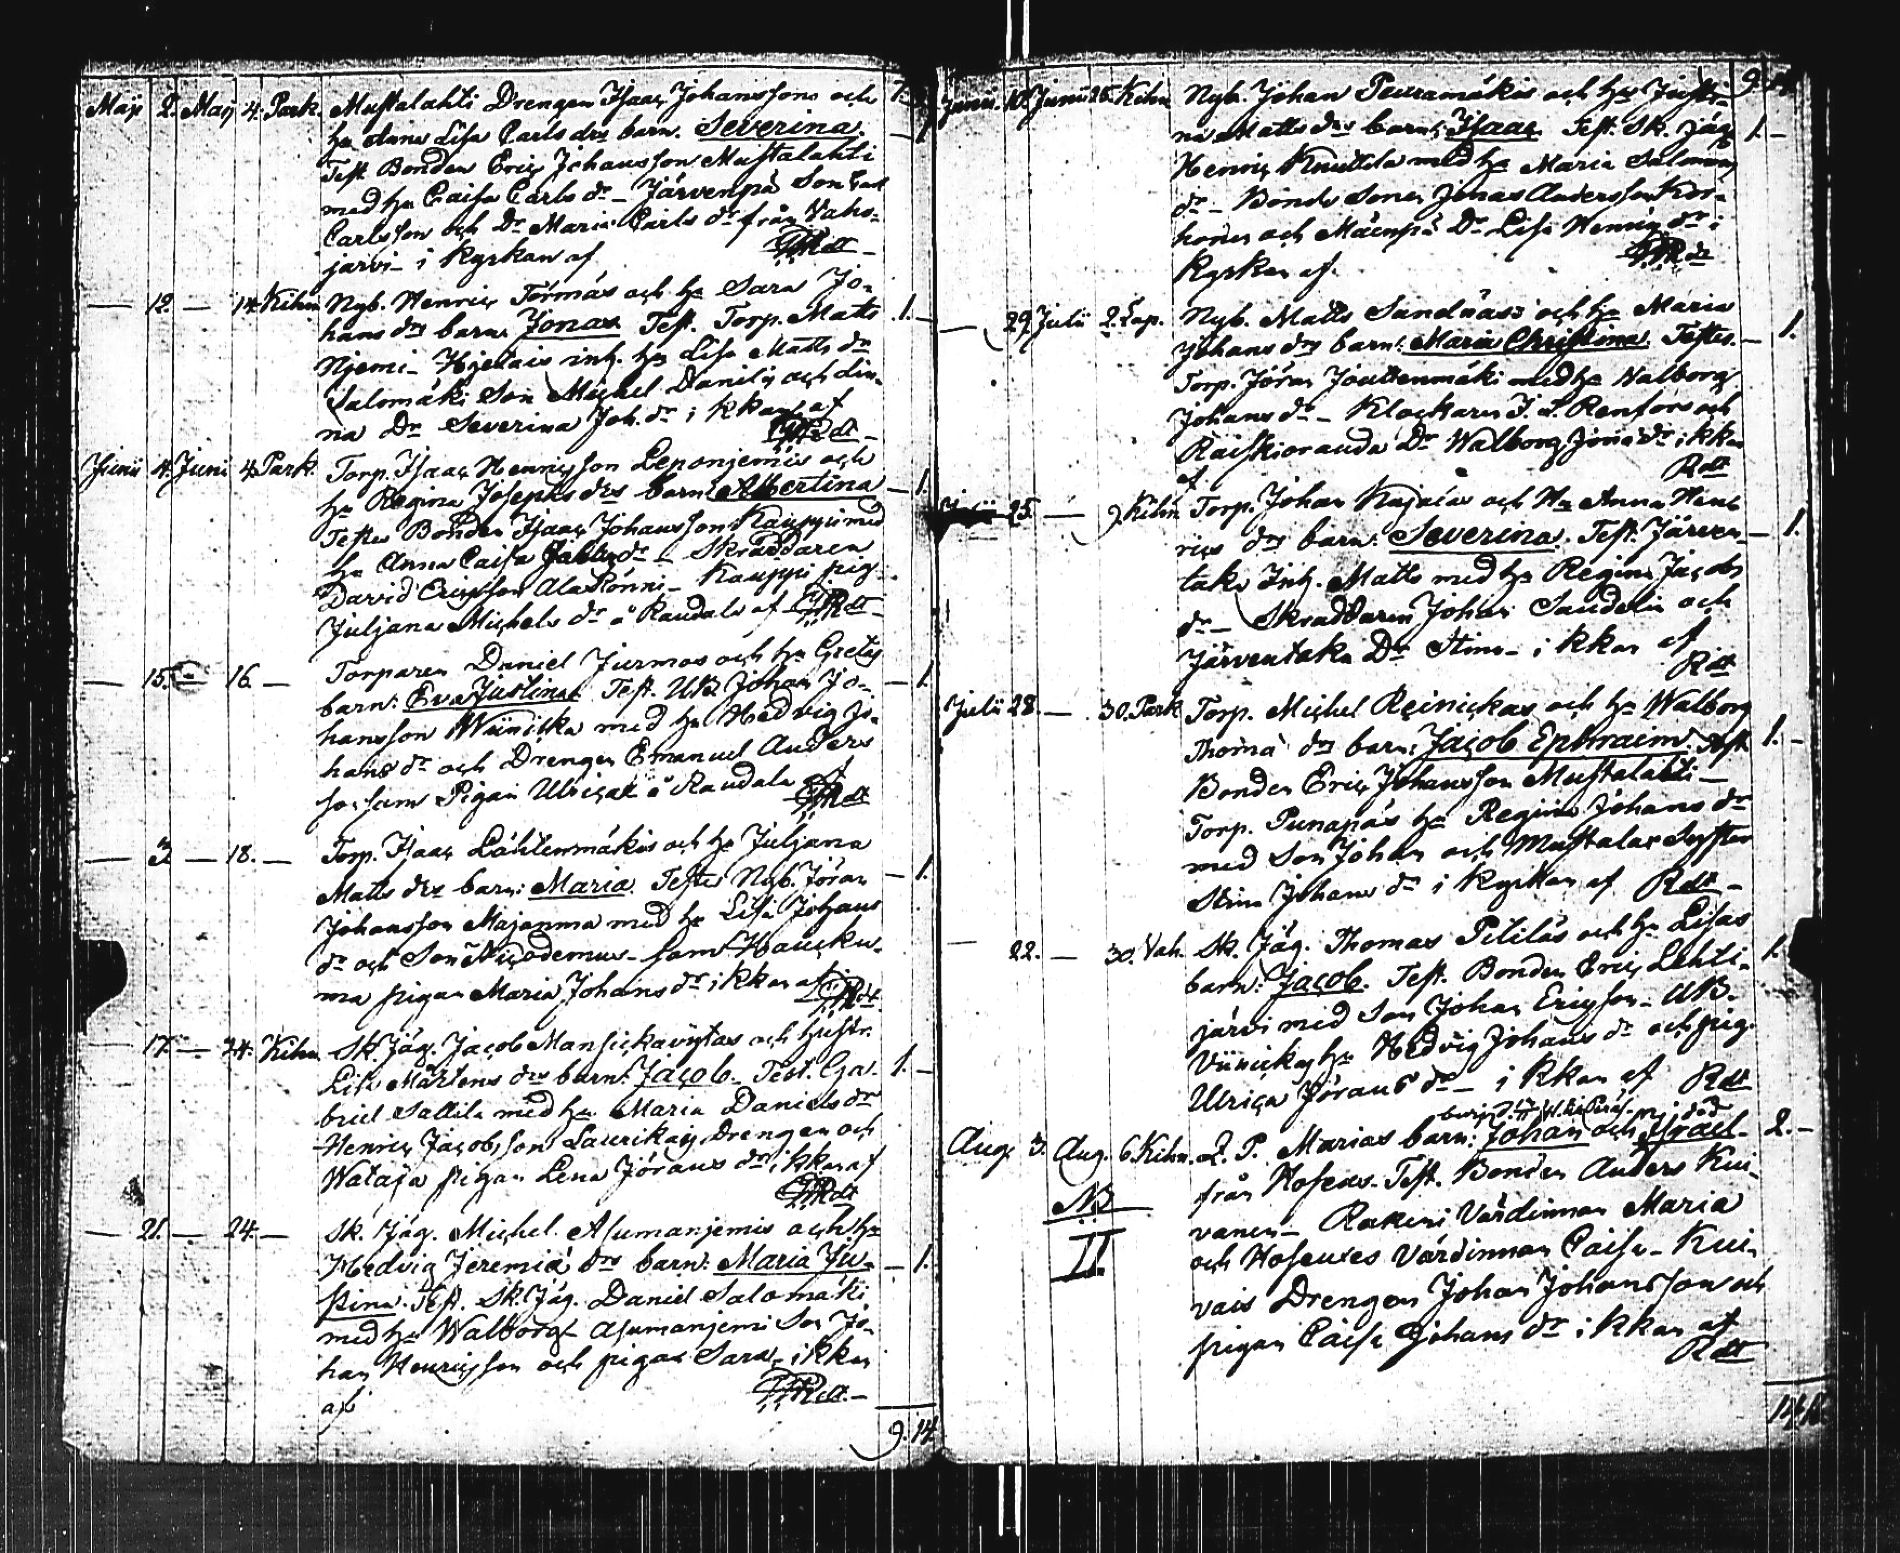 Maji 2. Maij 4. Park. Mustalahti Drengen Isaac Johanssons och 7.
ha Anna Lisa Carls drs barn: Severina. — 1
Test. Bonden Eric Johansson Mustalahti
med ha Caisa Carls dr – Järvenpä Son
Carlsson och Dr Maria Carls dr från Vaho-
jarvi – i Kyrkan af
— 12. — 14. Kihn. Nyb. Henric Törmäs och ha Sara Jo-
hans drs barn: Jonas. Test. Torp. Matts 1. –
Njemi – Hjelais inh. ha Lisa Matts dr
Salomäki Son Michel Danielss och
na Dr Severina Joh. dr i kkan af
Junii 4. Junii 4. Park. Torp. Isaac Henricsson Leponjemis och
ha Regina Josephs drs barn: Albertina – 1.
Testes Bonden Isaac Johansson Kauppi med
ha Anna Caisa dr – Skräddaren
David Ericsson AlaRönni – Kauppi pig.
Juljana Michels dr å Raudala af
— 15. — 16. — Torparen Daniel Jurmos och ha Gretas
barn: Eva Justina. Test. UB. Johan Jo- – 1.
hansson Wiinicka med ha Hedvig Jo-
hans dr och Drengen Emanuel Anders
son samt Pigan Ulrica å Raudala af
— 3 — 18. — Torp. Isaac Lähtenmäkis och ha Juljana
Matts drs barn: Maria. Testes Nyb. Jöran – 1.
Johansson Majanma med ha Lisa Johans
dr och Son Nicodemus – samt Haucku-
ma pigan Maria Johans dr i kkan af
17. — 24. Kihn. Sk. Jäg. Jacob Mansickavytas och hustr.
Lisa Mårtens drs barn: Jacob. Test. Ga- 1. –
briel Sallila med ha Maria Daniels dr
Henric Jacobsson Laurikais Drengen och
Wataja pigan Lena Jörans dr i kkan af
— 21. — 24. — Sk. Jäg. Michel Asumanjemis och ha
Hedvig Jeremiæ drs barn: Maria Ju- – 1.
stina. Test. Sk. Jäg. Daniel Salomäki
med ha Walborg – Asumanjemi Son Jo-
han Henricsson och pigan Sara – i kkan
af
9. 14.
Junii 10. Junii 25. Kihn Nyb. Johan Peuramäkis och ha Justi- 9. 14
na Matts drs barn: Isaac. Test. Sk. Jäg. 1. –
Henric Knuttila med ha Maria Salomons
dr – Bonde Sonen Jonas Andersson Kor-
honen och Mäenpä Dr Lisa Henrics dr i
Kyrkan af
— 29. Julii 2. Lap. Nyb. Matts Sandnäss och ha Maria
Johans drs barn: Maria Christina. Testes – 1.
Torp. Jöran Jouttenmäki med ha Walborg
Johans dr – Klockaren J. L. Renfors och
Raiskioranda Dr Walborg Jonæ dr i kkan
af
25. — 9. Kihn Torp. Johan Kujalas och Ha Anna Hen-
rics drs barn: Severina. Test. Järven- – 1.
taka Inh. Matts med ha Regina Jacobs
dr – Skräddaren Johan Sandelin och
Järventaka Dr Stina – i kkan af
Julii 28. — 30. Park Torp. Michel Reinickas och ha Walborg
Thomæ drs barn: Jacob Ephraim. Test 1. –
Bonden Eric Johansson Mustalahti –
Torp. Punapäs ha Regina Johans dr
med Son Johan och Mustalax Syster
Stina Johans dr i Kyrkan af
— 22. — 30. Vah. Sk. Jäg. Thomas Pitiläs och ha Lisas
barn: Jacob. Test. Bonden Eric Lehti- 1.
järvi med Son Johan Ericsson – UB.
Viinickas ha Hedvig Johans dr och pig.
Ulrica Jörans dr – i kkan af
död
Aug. 3. Aug. 6. Kihn. L. P. Marias barn: Johan och Israel. 2. –
NB från Hosenus. Test. Bonden Anders Kui-
vanen – Rakeni Värdinnan Maria
II. och Hosenxes Värdinnan Caisa – Kui-
vais Drengen Johan Johansson och
pigan Caisa Johans dr i kkan af